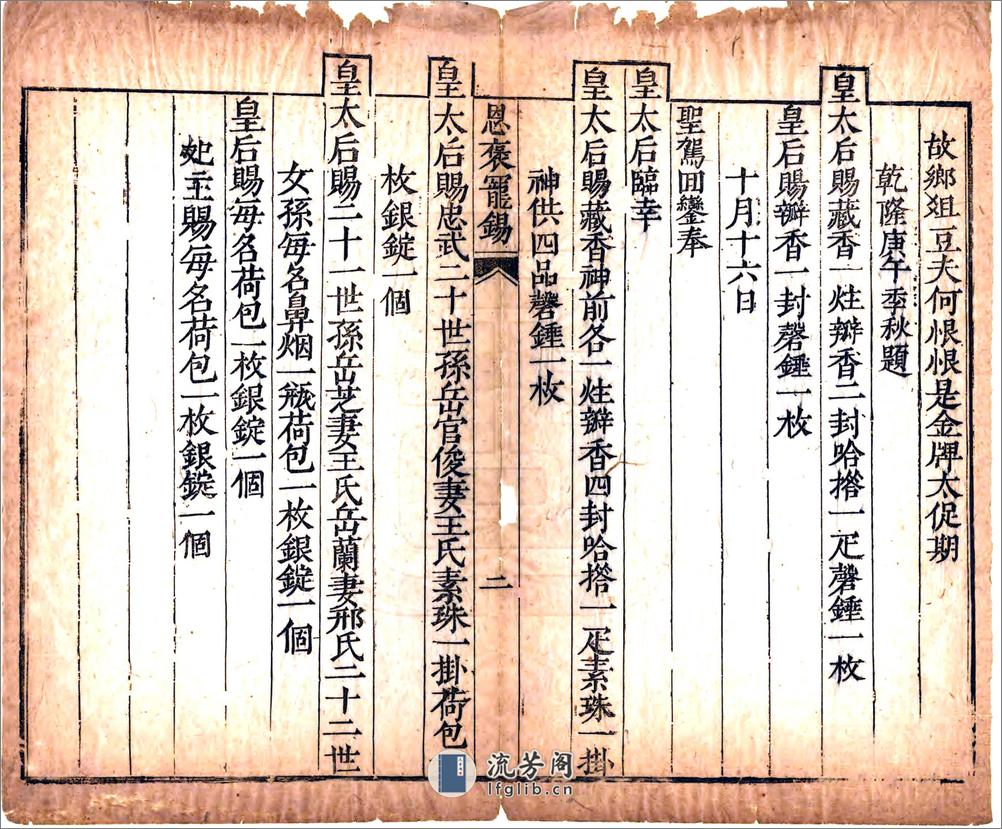 故鄉俎豆夫何恨恨是金牌太促期
乾隆庚午季秋題
皇太后賜藏香一炷瓣香二封哈撘一疋磬錘一枚
皇后賜瓣香一封磬錘一枚
十月十六日
聖駕回鑾奉
皇太后臨幸
皇太后賜藏香神前各一炷瓣香四封哈撘一疋素珠一掛
神供四品磬錘一枚
恩褒寵錫 二
皇太后賜忠武二十世孫岳官俊妻王氏素珠一掛荷包
枚銀錠一個
皇太后賜二十一世孫岳芝妻王氏岳蘭妻邢氏二十二世
女孫每名鼻烟一瓶荷包一枚銀錠一個
皇后賜每名荷包一枚銀錠一個
妃主賜每名荷包一枚銀錠一個
流芳阁
lfglib.cn